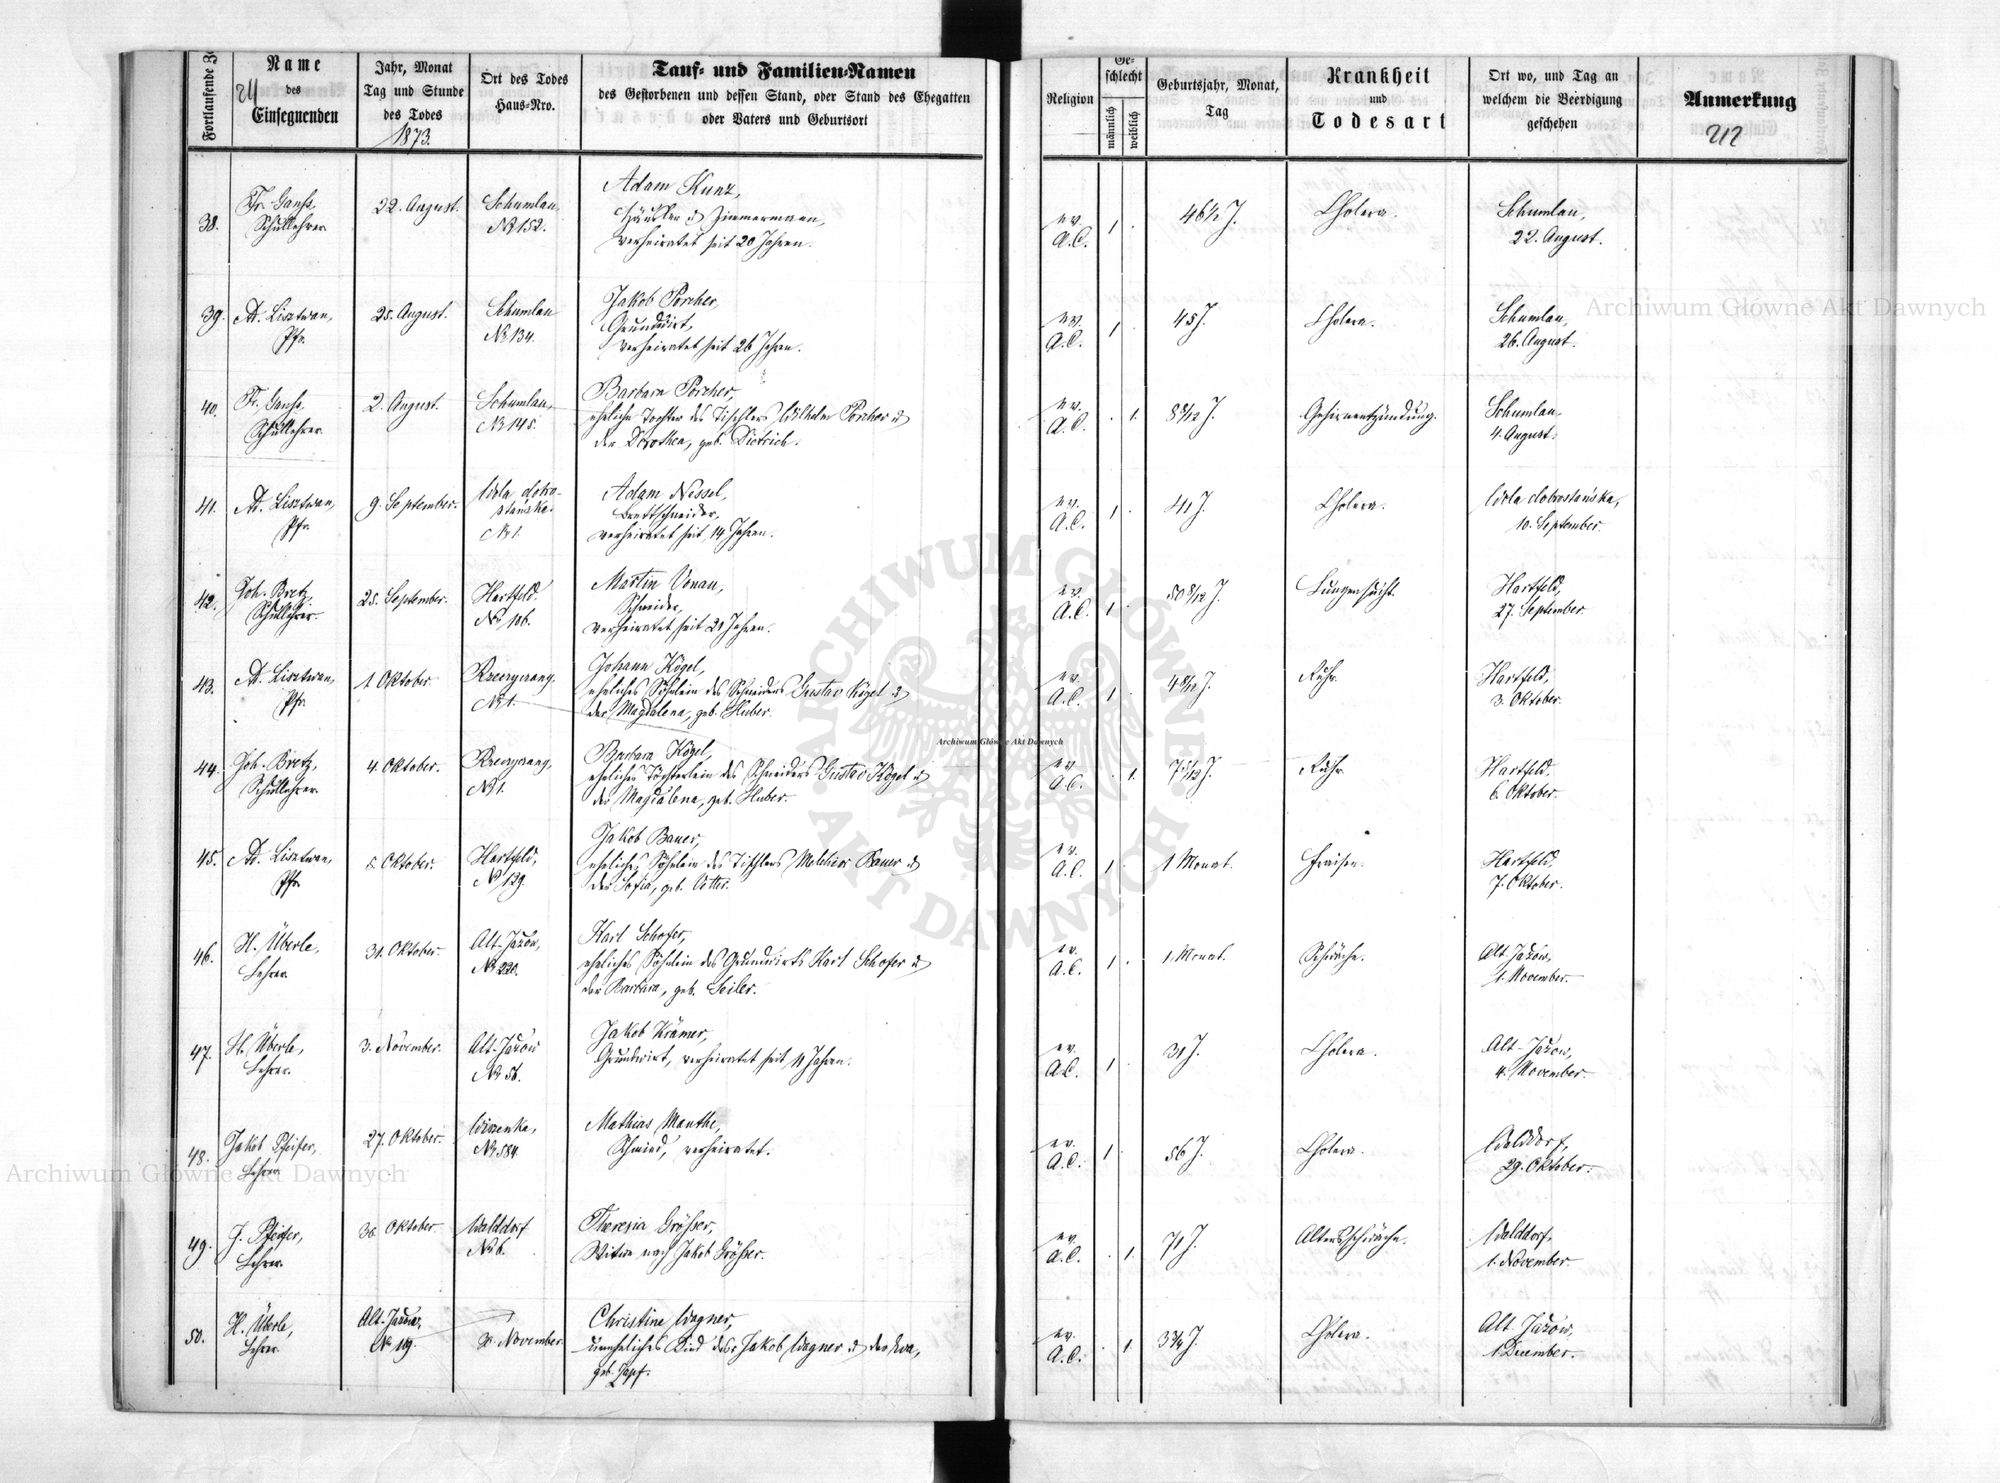 Fortlaufende Z
24
Name
des
Einsegnenden
Jahr, Monat
Tag und Stunde
des Todes
1873.
Ort des Todes
Haus-Nro.
Tauf- und Familien-Namen
des Gestorbenen und dessen Stand, oder Stand des Ehegatten
oder Vaters und Geburtsort
Religion
Geschlecht
männlich
weiblich
Geburtsjahr, Monat,
Tag
Krankheit
und
Todesart
Ort wo, und Tag an
welchem die Beerdigung
geschehen
Anmerkung
212
38.
Fr. Ganss,
Schullehrer
22. August.
Schumlau,
Nr 152.
Adam Kunz,
Häusler u. Zimmermann,
verheiratet seit 20 Jahren.
ev.
A.C.
1
46 1/2 J.
Cholera.
Schumlau,
22. August.
39.
A. Lisztwan,
Pfr.
25. August.
Schumlau
Nr 134.
Jakob Porcher,
Grundwirt,
verheiratet seit 26 Jahren.
ev.
A.C.
1
45 J.
Cholera.
Schumlau,
26. August.
40.
Fr. Ganss,
Schullehrer
2. August.
Schumlau,
Nr 145.
Barbara Porcher,
eheliche Tochter des Tischlers Wilhelm Porcher u.
der Dorothea, geb. Dietrich.
ev.
A.C.
1.
Gehirnentzündung.
Schumlau,
4. August.
41.
A. Lisztwan,
Pfr.
9. September.
Wola dobro-
stańska.
Nr 1.
Adam Nessel,
Brettschneider,
verheiratet seit 14 Jahren.
ev.
A.C.
1
41 J.
Cholera.
Wola dobrostańska,
10. September
42.
Joh. Bretz,
Schullehrer.
25. September.
Hartfeld.
Nr 106.
Martin Vonau,
Schneider,
verheiratet seit 21 Jahren.
ev.
A.C.
1
50 8/12 J.
Lungensucht.
Hartfeld,
27. September
43.
A. Lisztwan,
Pfr.
1. Oktober
Nr 1.
Johann Kögel,
eheliches Söhnlein des Schneiders Gustav Kögel u.
der Magdalena, geb. Huber.
ev.
A.C.
1
4 8/12 J.
Ruhr.
Hartfeld,
3. Oktober.
44.
Joh. Bretz,
Schullehrer
4. Oktober.
Nr 1.
Barbara Kögel,
eheliches Töchterlein des Schneiders Gustav Kögel u.
der Magdalena, geb. Huber.
ev.
A.C.
1.
Ruhr
Hartfeld.
6. Oktober.
45.
A. Lisztwan,
Pfr
5. Oktober.
Hartfeld,
Nr 129.
Jakob Bauer,
eheliches Söhnlein des Tischlers Melchior Bauer u.
der Sofia, geb. Otter.
ev.
A.C.
1
1 Monat.
Fraisen.
Hartfeld,
7. Oktober.
46.
H. Überle,
Lehrer
31. Oktober.
Alt-Jazow,
Nr 220.
Karl Schofer,
eheliches Söhnlein des Grundwirts Karl Schofer u.
der Barbara, geb. Seiler.
ev.
A.C.
1
1. Monat.
Schwäche.
Alt Jazow,
1. November.
47.
H. Überle,
Lehrer.
3. November.
Alt-Jazow
Nr 56.
Jakob Krämer,
Grundwirt, verheiratet seit 11 Jahren.
ev.
A.C.
1
31 J.
Cholera.
Alt-Jazow,
4. November.
48.
Jakob Pfeifer,
Lehrer
27. Oktober.
Wiszenka,
Nr 584
Mathias Manthe,
Schmied, verheiratet.
ev.
A.C.
1
56 J.
Cholera.
Walddorf,
29. Oktober.
49.
J. Pfeifer,
Lehrer.
30. Oktober.
Walddorf
Nr 6.
Theresia Grösser,
Witwe nach Jakob Grösser.
ev.
A.C.
1.
71 J.
Altersschwäche.
Walddorf,
1. November.
50.
H. Überle,
Lehrer
Alt-Jazow,
Nr 119.
30. November.
Christine Wagner,
uneheliches Kind des Jakob Wagner u. der Eva,
geb. Zapf.
ev.
A.C.
1.
3 3/4 J.
Cholera.
Alt Jazow,
1. December.
Archiwum Główne Akt Dawnych
Archiwum Główne Akt Dawnych
Archiwum Główne Akt Dawnych
ARCHIWUM GŁÓWNE AKT DAWNYCH